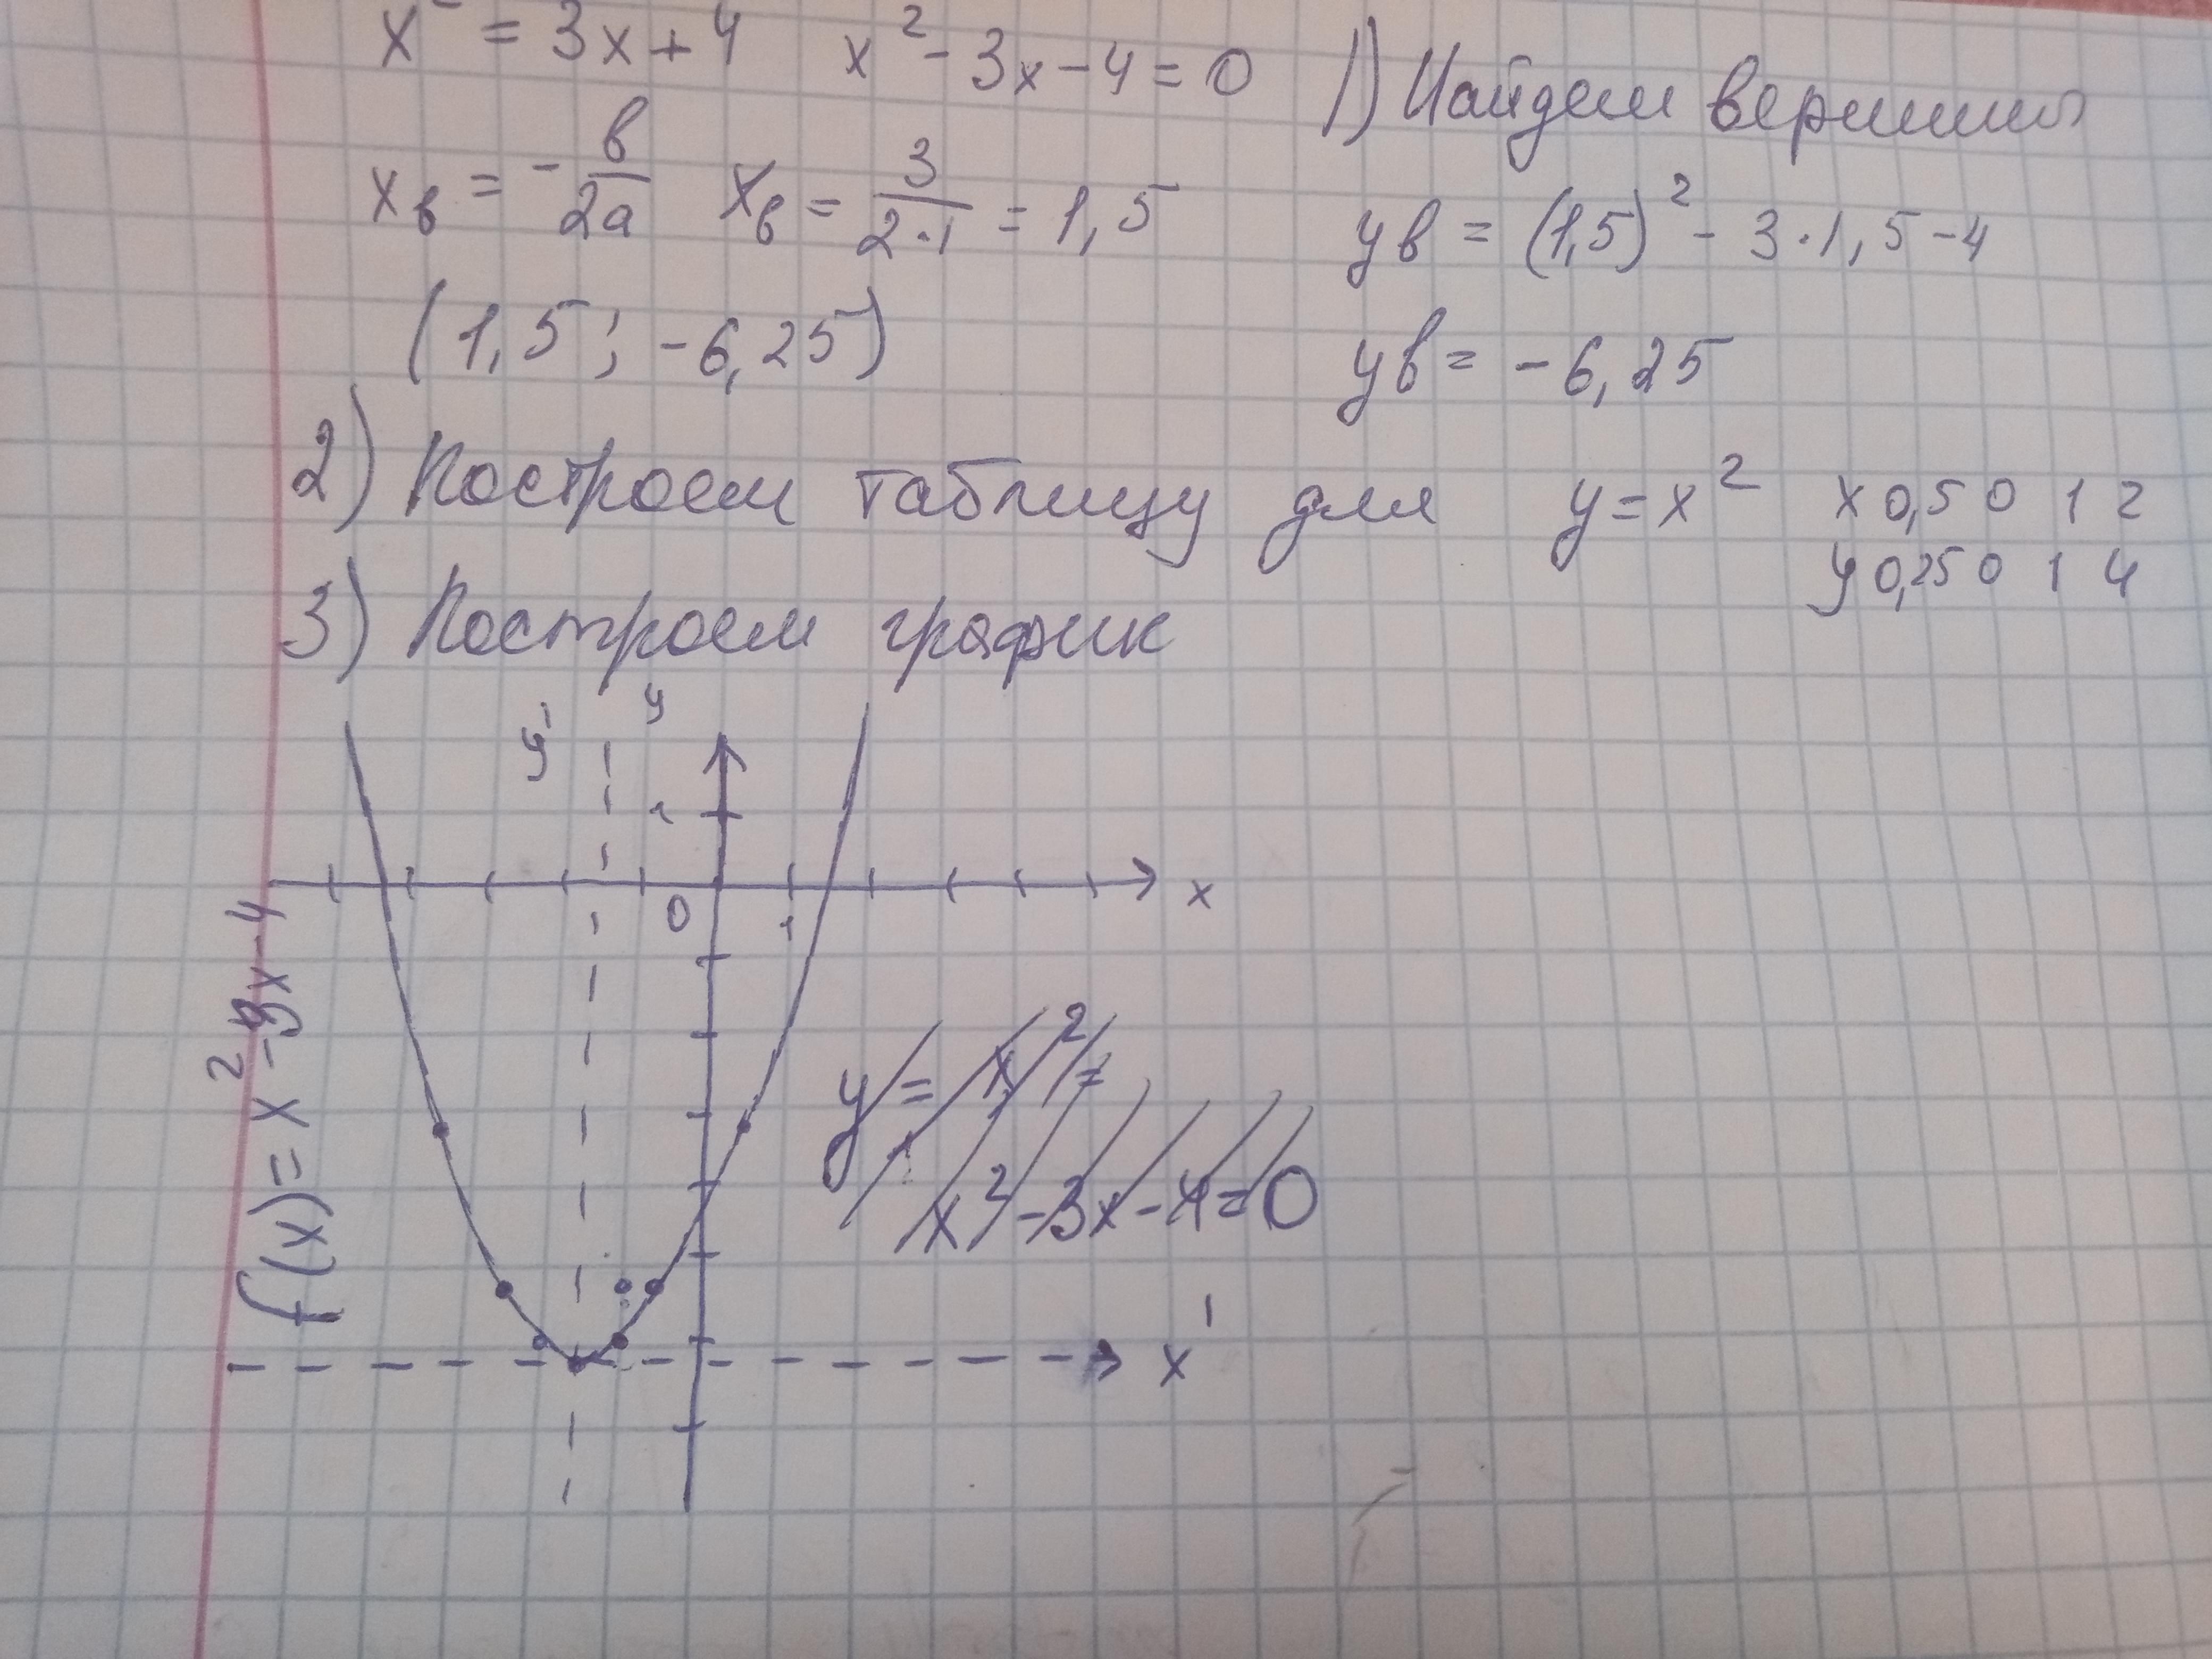 x² = 3x + 4   x² - 3x - 4 = 0   1) Найдем вершины
xв = - в/2а   xв = 3/(2·1) = 1,5   yв = (1,5)² - 3·1,5 - 4
(1,5; -6,25)   yв = -6,25
2) Построем таблицу для y = x²   x 0,5 0 1 2
y 0,25 0 1 4
3) Построем график
y' y
1
0 1 x
f(x) = x² - 3x - 4
y = x² =
x² - 3x - 4 = 0
x'